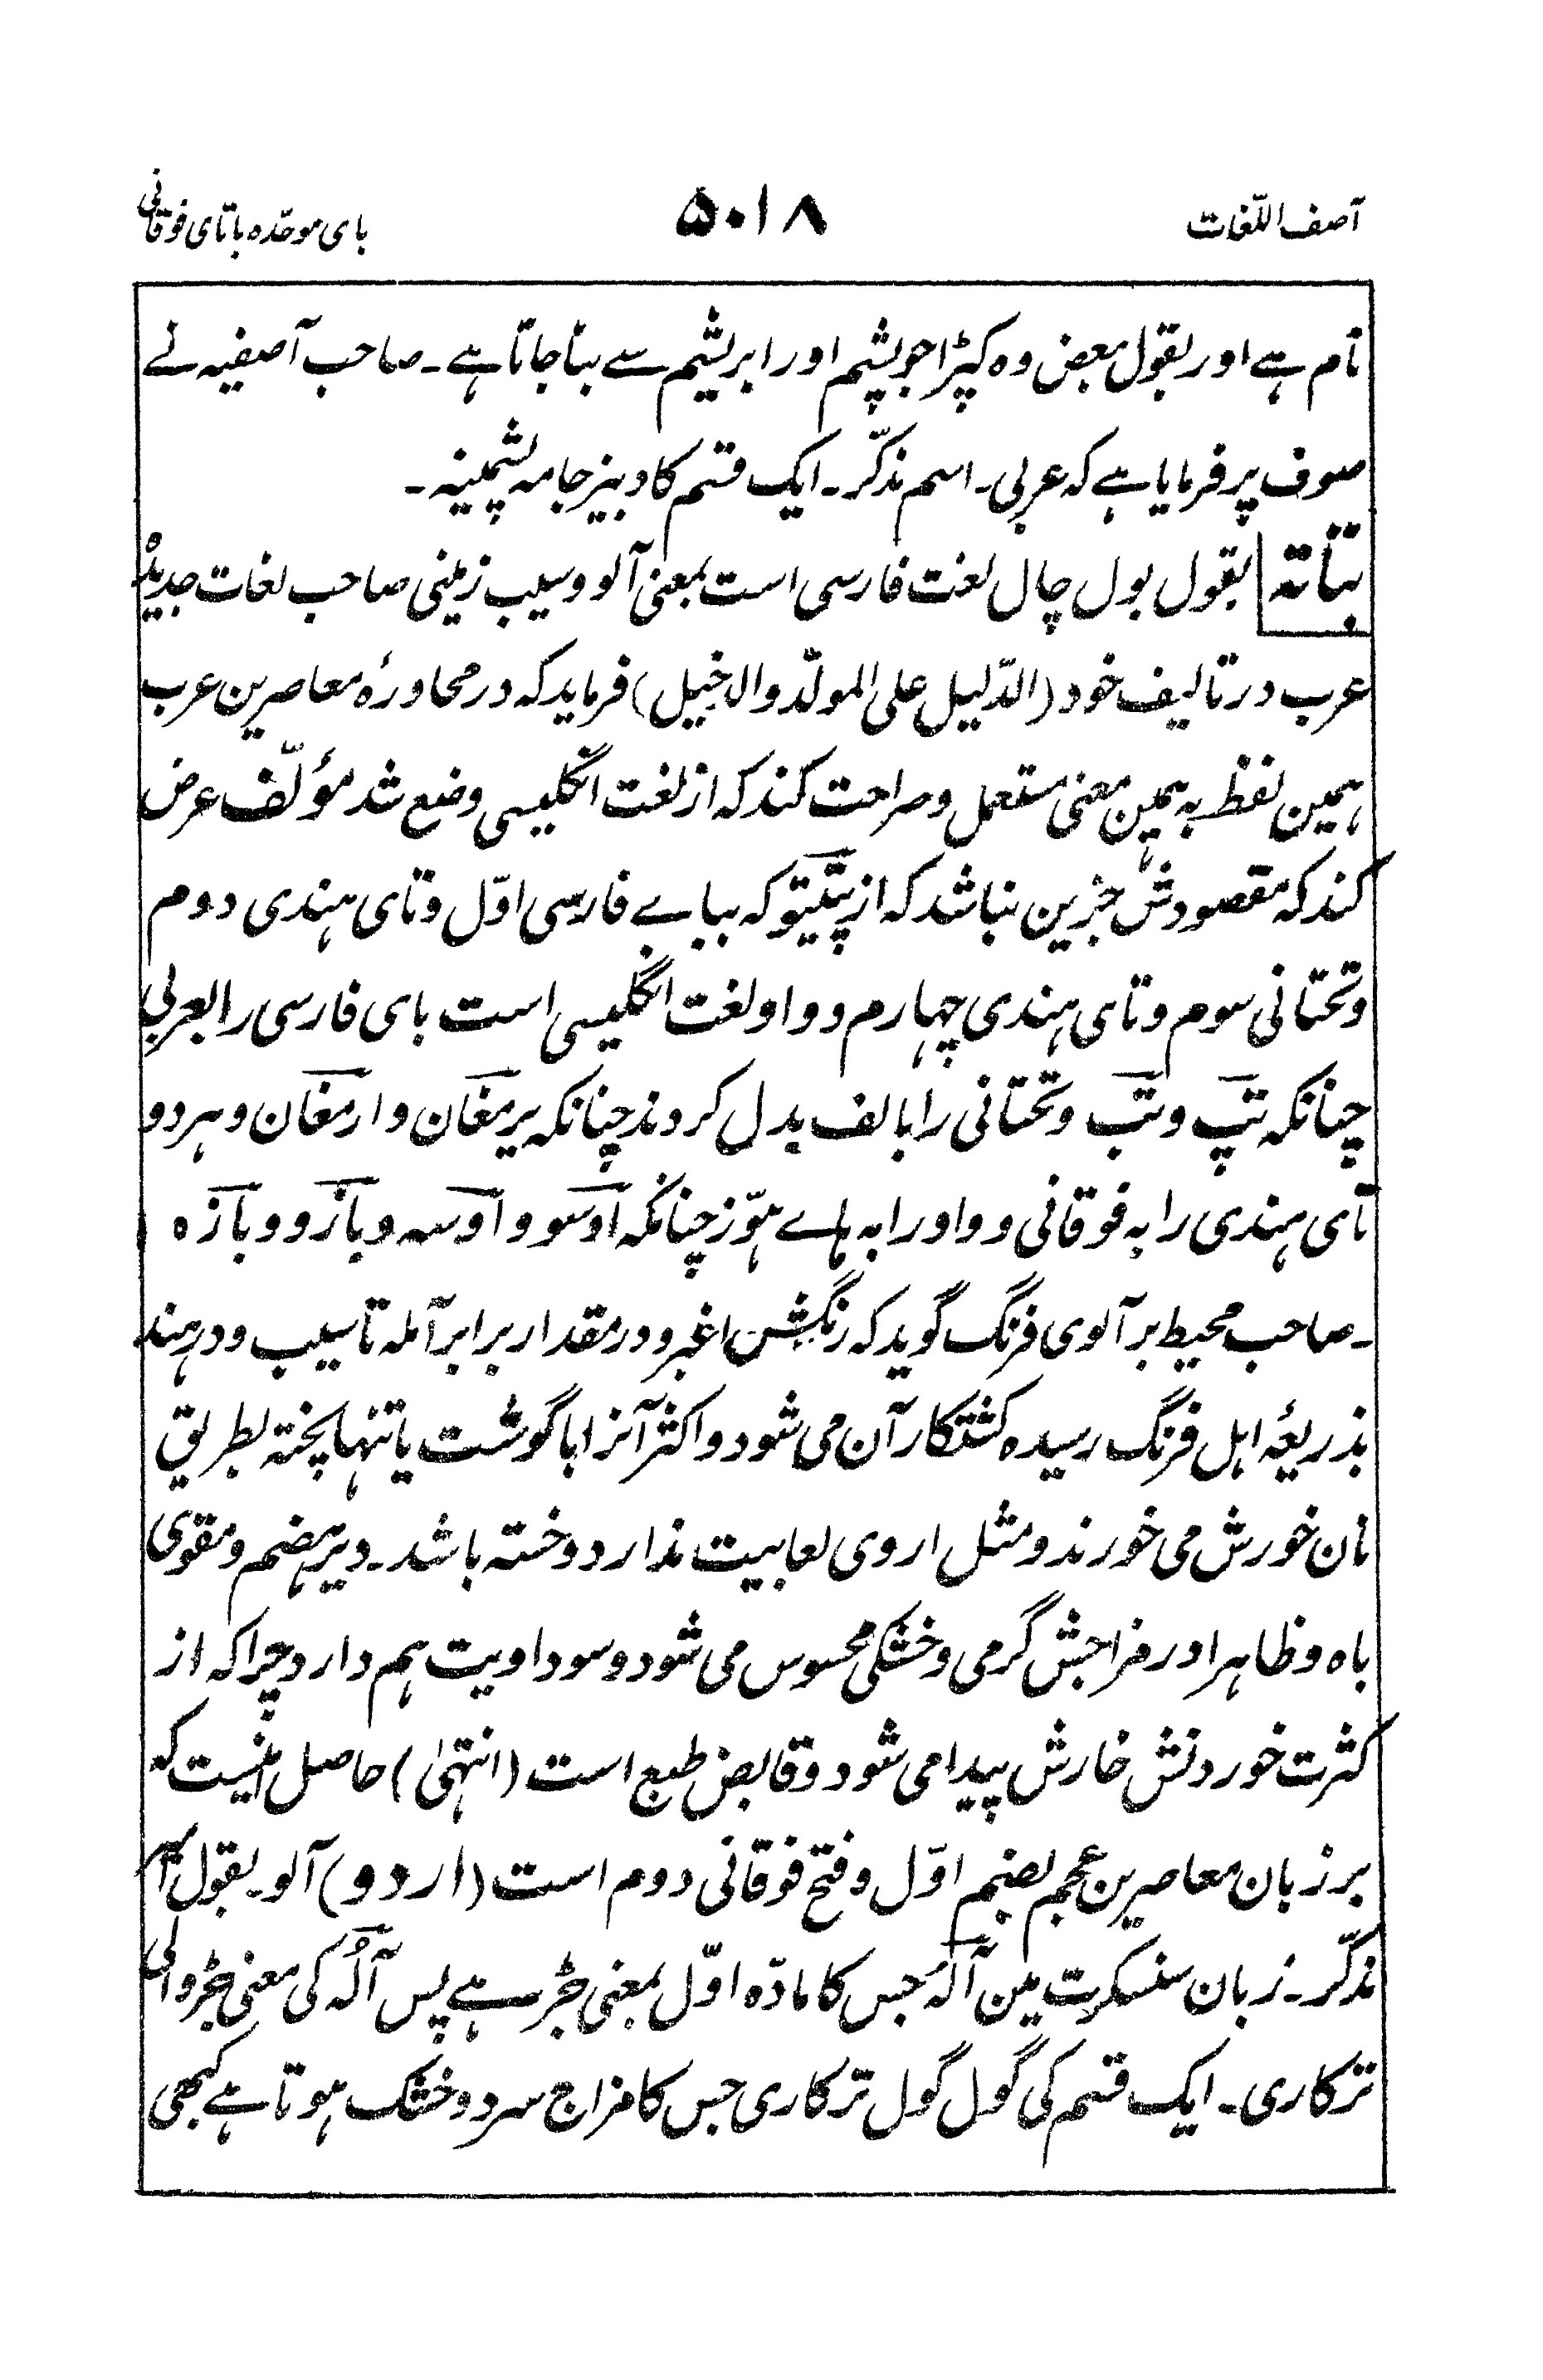 آصف اللّغات
۵۰۱۸
بای موحّدہ با تای فوقانی
نام ہے اور بقول بعض وہ کپڑا جو پشم اور ابریشم سے بنا جاتا ہے ۔ صاحب آصفیہ نے
صوف پر فرمایا ہے کہ عربی ۔ اسم مذکّر ۔ ایک قسم کا دبیز جامہ پشمینہ ۔
بتاتہ بقول بول چال لغت فارسی است بمعنی آلو و سیب زمینی صاحب لغات جدیدہ
عرب در تالیف خود (الدّلیل علی المولّد والدخیل) فرماید کہ در محاورۂ معاصرین عرب
ہمین لفظ بہ ہمین معنی مستعمل و صراحت کند کہ از لغت انگلیسی وضع شد مؤلّف عرض
کند کہ مقصودش جزین نباشد کہ از پٹیٹو کہ ببای فارسی اوّل و تای ہندی دوم
و تحتانی سوم و تای ہندی چہارم و واو لغت انگلیسی است بای فارسی را بعربی
چنانکہ تپ و تب و تحتانی را بالف بدل کردند چنانکہ یرمغان و ارمغان و ہر دو
تای ہندی را بہ فوقانی و واو را بہ ہاے ہوّز چنانکہ آوسو و آوسہ و بازو و بازہ
۔ صاحب محیط بر آلوی فرنگ گوید کہ رنگش اغبر و در مقدار برابر آملہ تا سیب و در ہند
بذریعۂ اہل فرنگ رسیدہ کشتکار آن می شود و اکثر آنرا با گوشت یا تنہا پختہ بطریق
نان خورش می خورند و مثل اروی لعابیت ندارد و خستہ باشد ۔ دیر ہضم و مقوی
باہ و ظاہرا در مزاجش گرمی و خشکی محسوس می شود و سوداویت ہم دارد چرا کہ از
کثرت خوردنش خارش پیدا می شود و قابض طبع است (انتہیٰ) حاصل اینست کہ
بر زبان معاصرین عجم بضم اوّل و فتح فوقانی دوم است (اردو) آلو ۔ بقول
مذکّر ۔ زبان سنسکرت مین آلُہ جس کا مادّہ اوّل بمعنی جڑ ہے پس آلُہ کی معنی جڑ والی
ترکاری ۔ ایک قسم کی گول گول ترکاری جس کا مزاج سرد و خشک ہوتا ہے کبھی